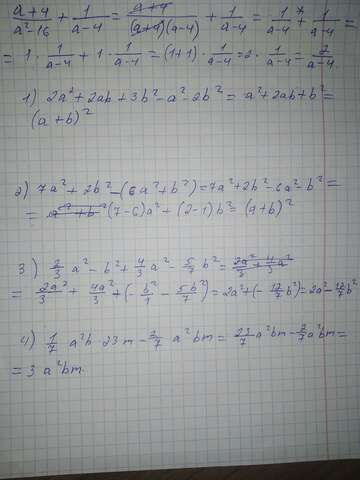 a+4/a²-16 + 1/a-4 = a+4/(a+4)(a-4) + 1/a-4 = 1/a-4 + 1/a-4 =
= 1 · 1/a-4 + 1 · 1/a-4 = (1+1) · 1/a-4 = 2 · 1/a-4 = 2/a-4
1) 2a² + 2ab + 3b² - a² - 2b² = a² + 2ab + b² =
(a+b)²
2) 7a² + 2b² - (6a² + b²) = 7a² + 2b² - 6a² - b² =
= a² + b² (7-6)a² + (2-1)b² = (a+b)²
3) 2/3 a² - b² + 4/3 a² - 5/7 b² = 2a²/3 + 4/3 a²
= 2a²/3 + 4a²/3 + (- b²/1 - 5b²/7) = 2a² + (- 12/7 b²) = 2a² - 12/7 b²
4) 1/7 a²b · 23m - 2/7 a²bm = 23/7 a²bm - 2/7 a²bm =
= 3 a²bm.